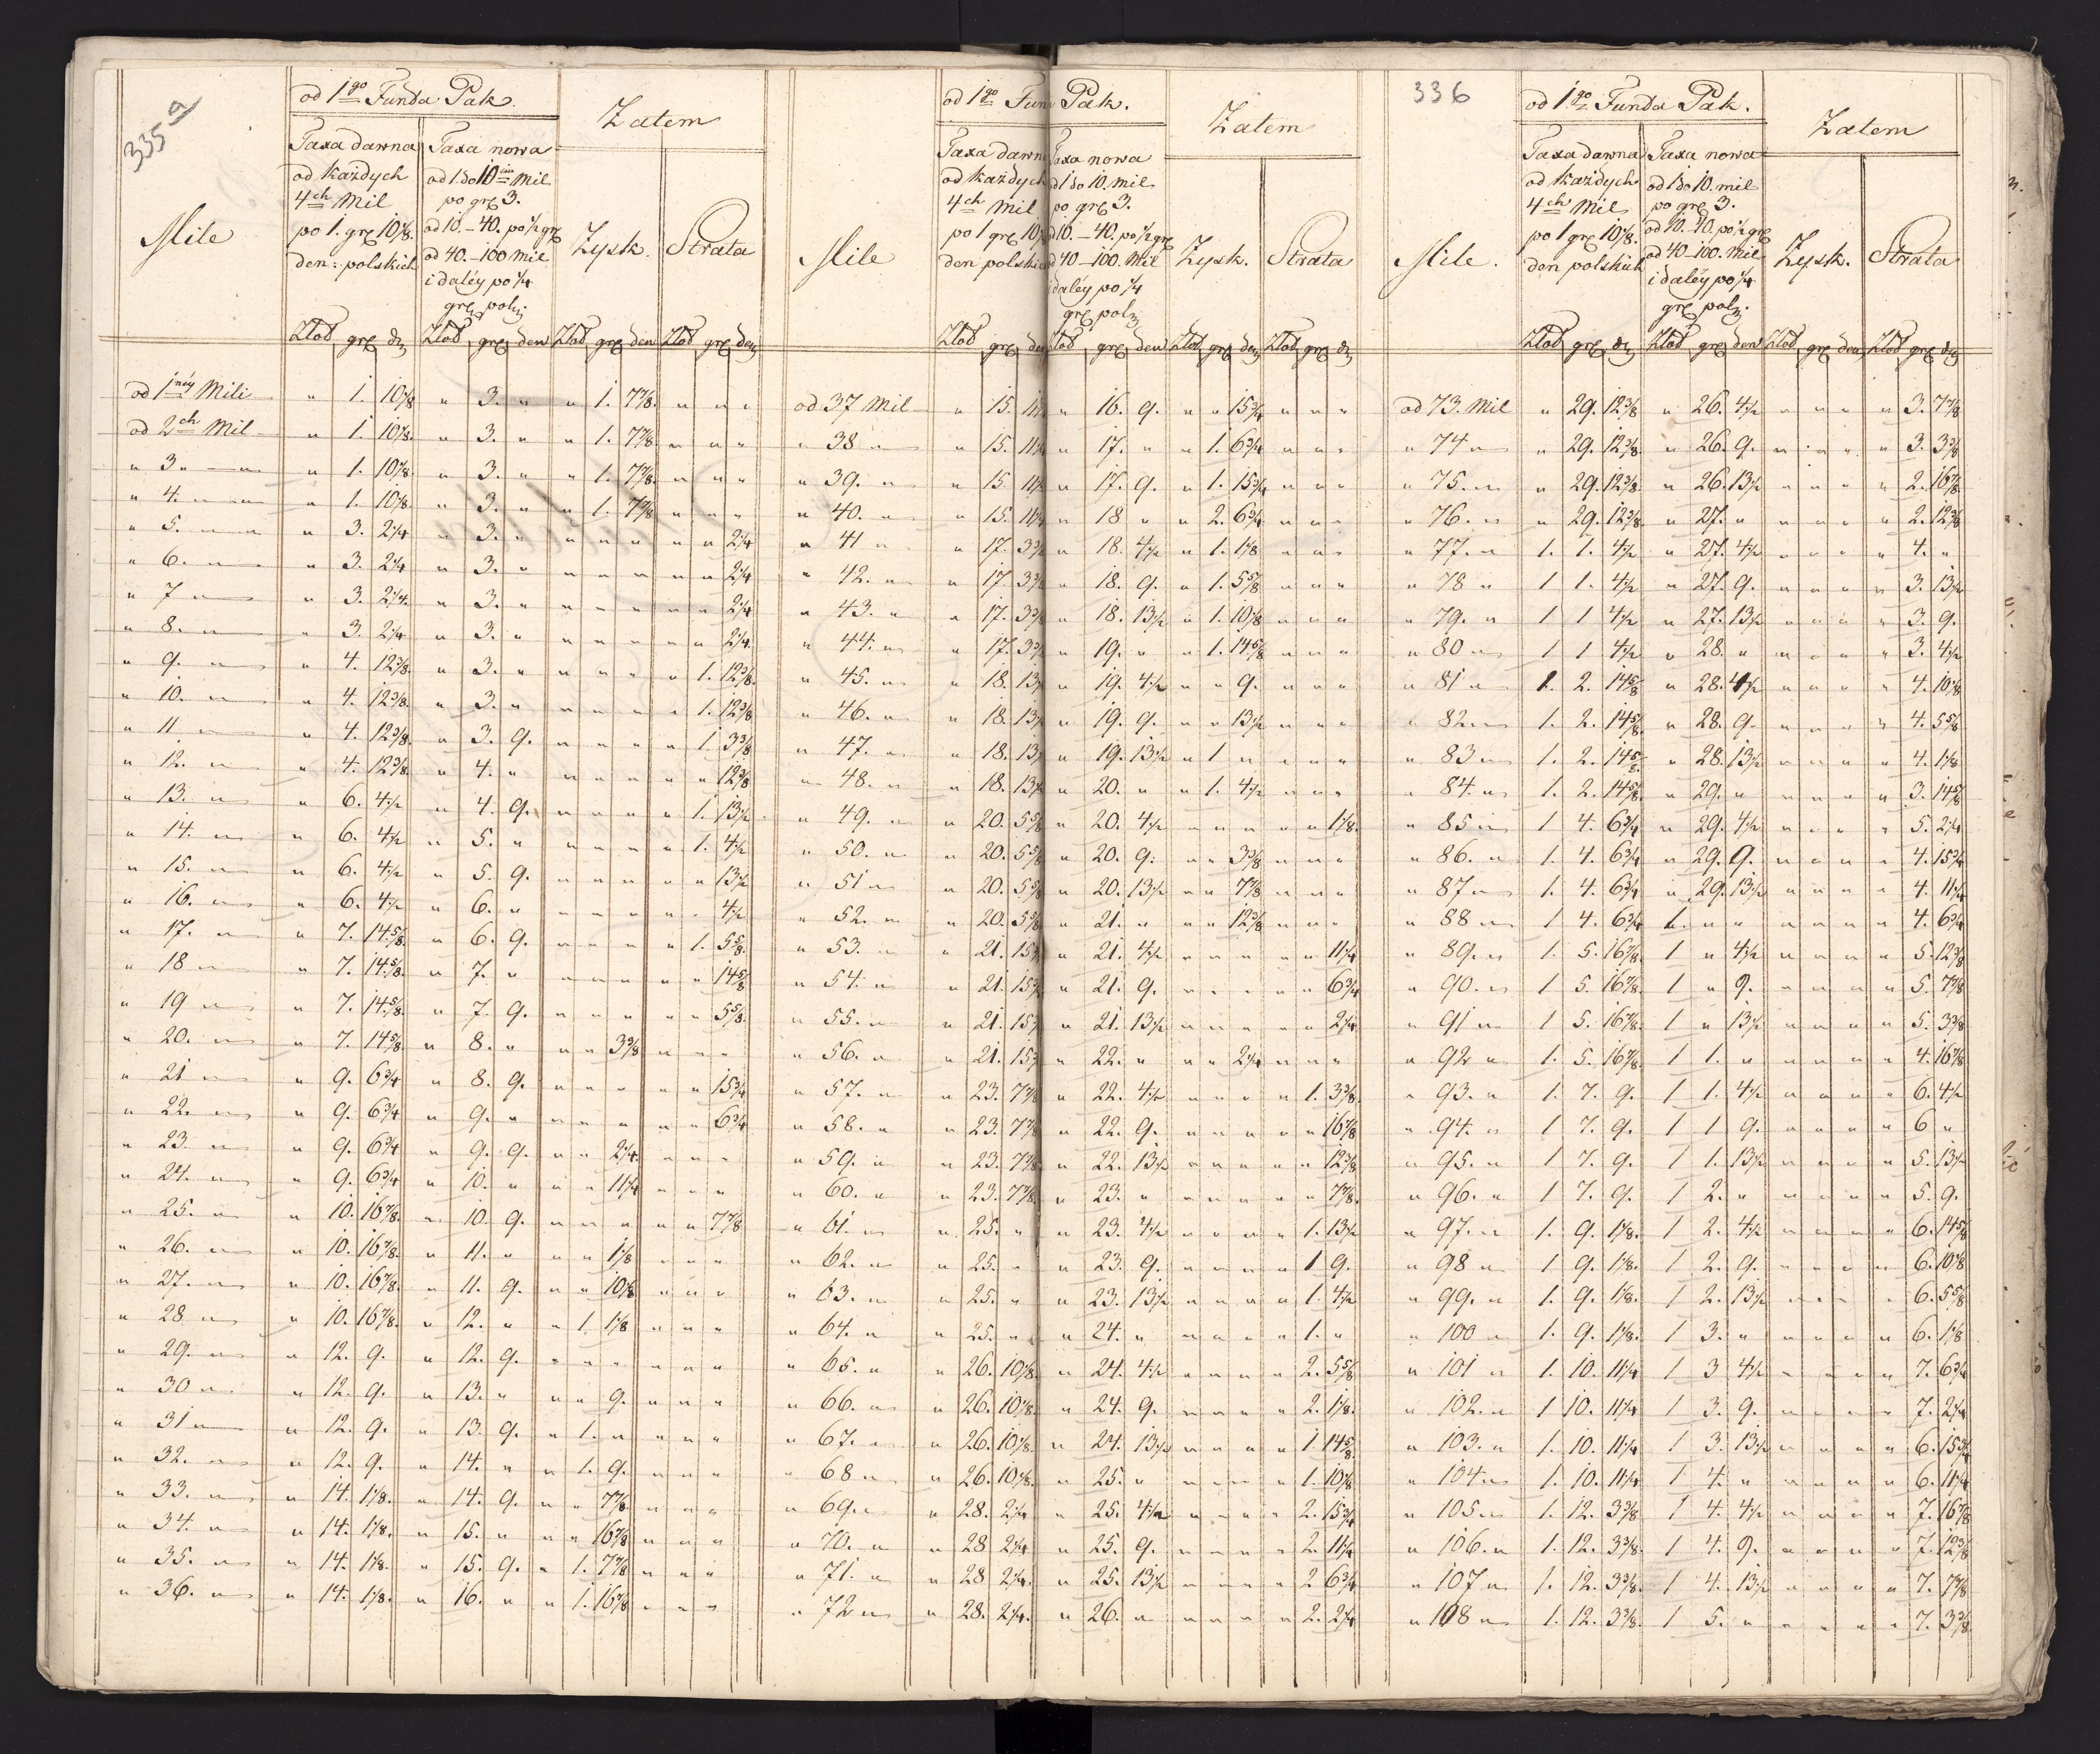 335 a
od 1go Funda Pak.
Zatem
Mile
Taxa dawna
od każdych
4ch Mil
po 1. grę 10 1/8.
den: polskich
Taxa nowa
od 1 do 10ciu Mil
po grę 3.
od 10.–40. po 1/2 grę
od 40.–100 Mil
i daléy po 1/4
grę polę.
Zysk.
Strata
Złot grę den Złot grę den Złot grę den Złot grę den
od 1néy Mili „ 1. 10 1/8 „ 3. „ „ 1. 7 7/8. „ „ „
od 2ch Mil „ 1. 10 1/8. „ 3. „ „ 1. 7 7/8 „ „ „
„ 3 „ „ 1. 10 1/8. „ 3. „ „ 1. 7 7/8. „ „ „
„ 4. „ „ 1. 10 1/8. „ 3. „ „ 1. 7 7/8 „ „ „
„ 5. „ „ 3. 2 1/4 „ 3. „ „ „ „ „ „ 2 1/4
„ 6. „ „ 3. 2 1/4 „ 3. „ „ „ „ „ „ 2 1/4
„ 7 „ „ 3. 2 1/4. „ 3. „ „ „ „ „ „ 2 1/4
„ 8. „ „ 3. 2 1/4 „ 3. „ „ „ „ „ „ 2 1/4
„ 9. „ „ 4. 12 3/8. „ 3. „ „ „ „ „ 1. 12 3/8.
„ 10. „ „ 4. 12 3/8. „ 3. „ „ „ „ „ 1. 12 3/8
„ 11 „ „ 4. 12 3/8. „ 3. 9. „ „ „ „ 1. 3 3/8
„ 12. „ „ 4. 12 3/8. „ 4. „ „ „ „ „ „ 12 3/8
„ 13. „ „ 6. 4 1/2 „ 4. 9. „ „ „ „ 1. 13 1/2
„ 14. „ „ 6. 4 1/2 „ 5. „ „ „ „ „ 1. 4 1/2
„ 15. „ „ 6. 4 1/2 „ 5. 9. „ „ „ „ „ 13 1/2
„ 16. „ „ 6. 4 1/2 „ 6. „ „ „ „ „ „ 4 1/2
„ 17. „ „ 7. 14 5/8. „ 6. 9. „ „ „ „ 1. 5 5/8.
„ 18 „ „ 7. 14 5/8. „ 7. „ „ „ „ „ „ 14 5/8
„ 19 „ „ 7. 14 5/8. „ 7. 9. „ „ „ „ „ 5 5/8.
„ 20. „ „ 7. 14 5/8 „ 8. „ „ „ 3 3/8 „ „ „
„ 21 „ „ 9. 6 3/4 „ 8. 9. „ „ „ „ „ 15 3/4
„ 22. „ „ 9. 6 3/4 „ 9. „ „ „ „ „ „ 6 3/4
„ 23. „ „ 9. 6 3/4 „ 9. 9. „ „ 2 1/4. „ „ „
„ 24. „ „ 9. 6 3/4 „ 10. „ „ „ 11 1/4 „ „ „
„ 25. „ „ 10. 16 7/8. „ 10. 9. „ „ „ „ „ 7 7/8
„ 26. „ „ 10. 16 7/8. „ 11. „ „ „ 1 1/8 „ „ „
„ 27. „ „ 10. 16 7/8. „ 11. 9. „ „ 10 1/8 „ „ „
„ 28 „ „ 10. 16 7/8. „ 12. „ „ 1. 1 1/8 „ „ „
„ 29. „ „ 12. 9. „ 12. 9. „ „ „ „ „ „
„ 30 „ „ 12. 9. „ 13. „ „ „ 9. „ „ „
„ 31 „ „ 12. 9. „ 13. 9. „ 1. „ „ „ „
„ 32. „ „ 12. 9. „ 14. „ „ 1. 9. „ „ „
„ 33. „ „ 14. 1 1/8. „ 14. 9. „ „ 7 7/8 „ „ „
„ 34. „ „ 14. 1 1/8. „ 15. „ „ „ 16 7/8 „ „ „
„ 35. „ „ 14. 1 1/8. „ 15. 9. „ 1. 7 7/8 „ „ „
„ 36. „ „ 14. 1 1/8. „ 16. „ „ 1. 16 7/8 „ „ „
od 1go Funda Pak.
Zatem
Mile
Taxa dawna
od każdych
4ch Mil
po 1 grę 10 1/8
den polskich
Taxa nowa
od 1 do 10. mil
po grę 3.
od 10.–40. po 1/2 grę
od 40–100. Mil
i daléy po 1/4
grę polę
Zysk.
Strata
Złot grę den Złot grę den Złot grę den Złot grę den
od 37 Mil „ 15. 11 1/4 „ 16. 9. „ „ 15 3/4 „ „ „
„ 38 „ „ 15. 11 1/4 „ 17. „ „ 1. 6 3/4 „ „ „
„ 39. „ „ 15. 11 1/4 „ 17. 9. „ 1. 15 3/4 „ „ „
„ 40. „ „ 15. 11 1/4 „ 18 „ „ 2. 6 3/4 „ „ „
„ 41 „ „ 17. 3 3/8 „ 18. 4 1/2 „ 1. 1 1/8 „ „ „
„ 42. „ „ 17. 3 3/8 „ 18. 9. „ 1. 5 5/8 „ „ „
„ 43. „ „ 17. 3 3/8 „ 18. 13 1/2 „ 1. 10 1/8 „ „ „
„ 44. „ „ 17. 3 3/8 „ 19. „ „ 1. 14 5/8 „ „ „
„ 45. „ „ 18. 13 1/2 „ 19. 4 1/2 „ „ 9. „ „ „
„ 46. „ „ 18. 13 1/2 „ 19. 9. „ „ 13 1/2 „ „ „
„ 47. „ „ 18. 13 1/2 „ 19. 13 1/2 „ 1 „ „ „ „
„ 48. „ „ 18. 13 1/2 „ 20. „ „ 1. 4 1/2 „ „ „
„ 49. „ „ 20. 5 5/8 „ 20. 4 1/2 „ „ „ „ „ 1 1/8.
„ 50. „ „ 20. 5 5/8 „ 20. 9. „ „ 3 3/8 „ „ „
„ 51 „ „ 20. 5 5/8 „ 20. 13 1/2 „ „ 7 7/8 „ „ „
„ 52. „ „ 20. 5 5/8 „ 21. „ „ „ 12 3/8 „ „ „
„ 53. „ „ 21. 15 3/4 „ 21. 4 1/2 „ „ „ „ „ 11 1/4
„ 54. „ „ 21. 15 3/4 „ 21. 9. „ „ „ „ „ 6 3/4
„ 55. „ „ 21. 15 3/4 „ 21. 13 1/2 „ „ „ „ „ 2 1/4.
„ 56. „ „ 21. 15 3/4 „ 22. „ „ „ 2 1/4 „ „ „
„ 57. „ „ 23. 7 7/8 „ 22. 4 1/2 „ „ „ „ 1. 3 3/8.
„ 58. „ „ 23. 7 7/8 „ 22. 9. „ „ „ „ „ 16 7/8
„ 59. „ „ 23. 7 7/8 „ 22. 13 1/2 „ „ „ „ „ 12 3/8
„ 60. „ „ 23. 7 7/8 „ 23. „ „ „ „ „ „ 7 7/8.
„ 61. „ „ 25. „ „ 23. 4 1/2 „ „ „ „ 1. 13 1/2
„ 62. „ „ 25. „ „ 23. 9. „ „ „ „ 1 9.
„ 63. „ „ 25. „ „ 23. 13 1/2 „ „ „ „ 1. 4 1/2
„ 64. „ „ 25. „ „ 24. „ „ „ „ „ 1. „
„ 65. „ „ 26. 10 1/8. „ 24. 4 1/2 „ „ „ „ 2. 5 5/8
„ 66. „ „ 26. 10 1/8. „ 24. 9. „ „ „ „ 2. 1 1/8.
„ 67. „ „ 26. 10 1/8. „ 24. 13 1/2 „ „ „ „ 1. 14 5/8.
„ 68 „ „ 26. 10 1/8. „ 25. „ „ „ „ „ 1. 10 1/8
„ 69. „ „ 28. 2 1/4 „ 25. 4 1/2 „ „ „ „ 2. 15 3/4
„ 70. „ „ 28 2 1/4 „ 25. 9. „ „ „ „ 2. 11 1/4
„ 71. „ „ 28 2 1/4. „ 25. 13 1/2 „ „ „ „ 2 6 3/4
„ 72 „ „ 28. 2 1/4. „ 26. „ „ „ „ „ 2. 2 1/4
336
od 1go Funda Pak.
Zatem
Mile.
Taxa dawna
od każdych
4ch Mil
po 1 grę 10 1/8.
den polskich
Taxa nowa
od 1 do 10. mil
po grę 3.
od 10.–40. po 1/2 grę
od 40–100. Mil
i daléy po 1/4
grę polę.
Zysk.
Strata
Złot grę den Złot grę den Złot grę den Złot grę den
od 73. Mil „ 29. 12 3/8 „ 26. 4 1/2 „ „ „ „ 3. 7 7/8
„ 74 „ „ 29. 12 3/8. „ 26. 9. „ „ „ „ 3. 3 3/8
„ 75. „ „ 29. 12 3/8. „ 26. 13 1/2 „ „ „ „ 2. 16 7/8.
„ 76. „ „ 29. 12 3/8. „ 27. „ „ „ „ „ 2. 12 3/8
„ 77. „ 1. 1. 4 1/2 „ 27. 4 1/2 „ „ „ „ 4. „
„ 78 „ 1 1. 4 1/2 „ 27. 9. „ „ „ „ 3. 13 1/2
„ 79. „ 1 1 4 1/2 „ 27. 13 1/2 „ „ „ „ 3. 9.
„ 80 „ 1 1 4 1/2 „ 28. „ „ „ „ „ 3. 4 1/2
„ 81 „ 1. 2. 14 5/8 „ 28. 4 1/2 „ „ „ „ 4. 10 1/8
„ 82. „ 1. 2. 14 5/8. „ 28. 9. „ „ „ „ 4. 5 5/8
„ 83 „ 1. 2. 14 5/8. „ 28. 13 1/2 „ „ „ „ 4. 1 1/8
„ 84. „ 1. 2. 14 5/8. „ 29. „ „ „ „ „ 3. 14 5/8
„ 85 „ 1 4. 6 3/4 „ 29. 4 1/2 „ „ „ „ 5. 2 1/4
„ 86. „ 1. 4. 6 3/4 „ 29. 9. „ „ „ „ 4. 15 3/4
„ 87 „ 1. 4. 6 3/4 „ 29. 13 1/2 „ „ „ „ 4. 11 1/4
„ 88 „ 1 4. 6 3/4 1. „ „ „ „ „ „ 4. 6 3/4
„ 89. „ 1. 5. 16 7/8. 1 „ 4 1/2 „ „ „ „ 5. 12 3/8
„ 90. „ 1 5. 16 7/8. 1 „ 9. „ „ „ „ 5. 7 7/8
„ 91 „ 1 5. 16 7/8. 1 „ 13 1/2 „ „ „ „ 5. 3 3/8
„ 92 „ 1. 5. 16 7/8. 1 1. „ „ „ „ „ 4. 16 7/8
„ 93. „ 1. 7. 9. 1 1. 4 1/2 „ „ „ „ 6. 4 1/2
„ 94. „ 1 7. 9. 1 1 9. „ „ „ „ 6 „
„ 95. „ 1 7. 9. 1 1. 13 1/2 „ „ „ „ 5. 13 1/2
„ 96. „ 1 7. 9. 1 2. „ „ „ „ „ 5. 9.
„ 97. „ 1. 9. 1 1/8. 1 2. 4 1/2 „ „ „ „ 6. 14 5/8
„ 98 „ 1 9. 1 1/8. 1 2. 9. „ „ „ „ 6. 10 1/8
„ 99. „ 1. 9. 1 1/8. 1 2. 13 1/2 „ „ „ „ 6. 5 5/8
„ 100 „ 1. 9. 1 1/8. 1 3. „ „ „ „ „ 6. 1 1/8
„ 101 „ 1. 10. 11 1/4 1 3 4 1/2 „ „ „ „ 7. 6 3/4
„ 102. „ 1 10. 11 1/4 1 3. 9. „ „ „ „ 7. 2 1/4
„ 103. „ 1. 10. 11 1/4 1 3. 13 1/2 „ „ „ „ 6. 15 3/4
„ 104 „ 1. 10. 11 1/4 1 4. „ „ „ „ „ 6. 11 1/4
„ 105 „ 1. 12. 3 3/8 1 4. 4 1/2 „ „ „ „ 7. 16 7/8
„ 106. „ 1. 12. 3 3/8. 1 4. 9. „ „ „ „ 7. 12 3/8
„ 107 „ 1. 12. 3 3/8. 1 4. 13 1/2 „ „ „ „ 7. 7 7/8
„ 108 „ 1. 12. 3 3/8. 1 5. „ „ „ „ „ 7. 3 3/8